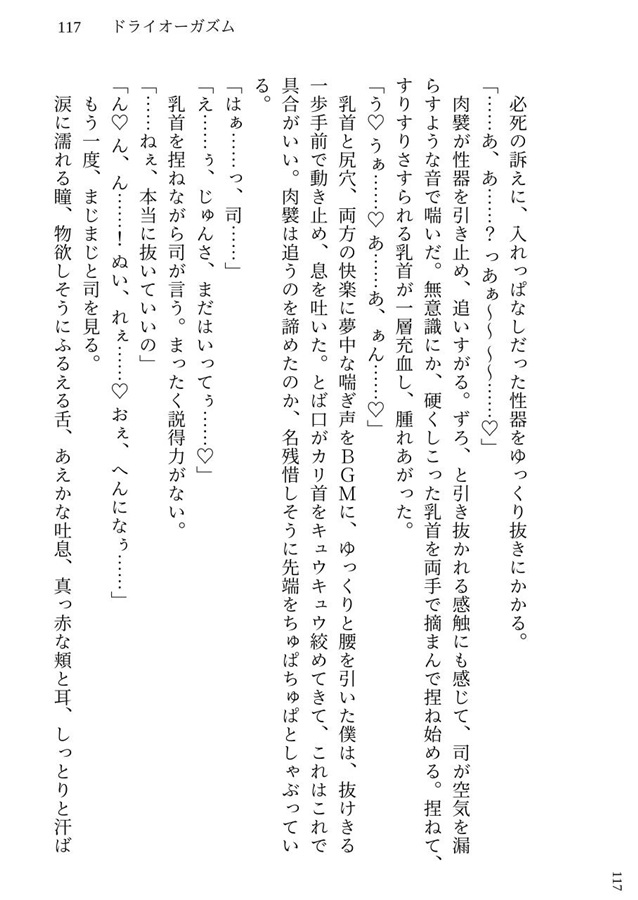 117　ドライオーガズム
必死の訴えに、入れっぱなしだった性器をゆっくり抜きにかかる。
「……あ、あ……？　っあぁ〜〜〜〜……♡」
肉襞が性器を引き止め、追いすがる。ずろ、と引き抜かれる感触にも感じて、司が空気を漏
らすような音で喘いだ。無意識にか、硬くしこった乳首を両手で摘まんで捏ね始める。捏ねて、
すりすりさすられる乳首が一層充血し、腫れあがった。
「う♡うぁ……♡あ……あ、ぁん……♡」
乳首と尻穴、両方の快楽に夢中な喘ぎ声をＢＧＭに、ゆっくりと腰を引いた僕は、抜けきる
一歩手前で動き止め、息を吐いた。とば口がカリ首をキュウキュウ絞めてきて、これはこれで
具合がいい。肉襞は追うのを諦めたのか、名残惜しそうに先端をちゅぱちゅぱとしゃぶってい
る。
「はぁ……っ、司……」
「え……ぅ、じゅんさ、まだはいってぅ……♡」
乳首を捏ねながら司が言う。まったく説得力がない。
「……ねぇ、本当に抜いていいの」
「ん♡ん、ん……！　ぬい、れぇ……♡おぇ、へんになぅ……」
もう一度、まじまじと司を見る。
涙に濡れる瞳、物欲しそうにふるえる舌、あえかな吐息、真っ赤な頬と耳、しっとりと汗ば
117